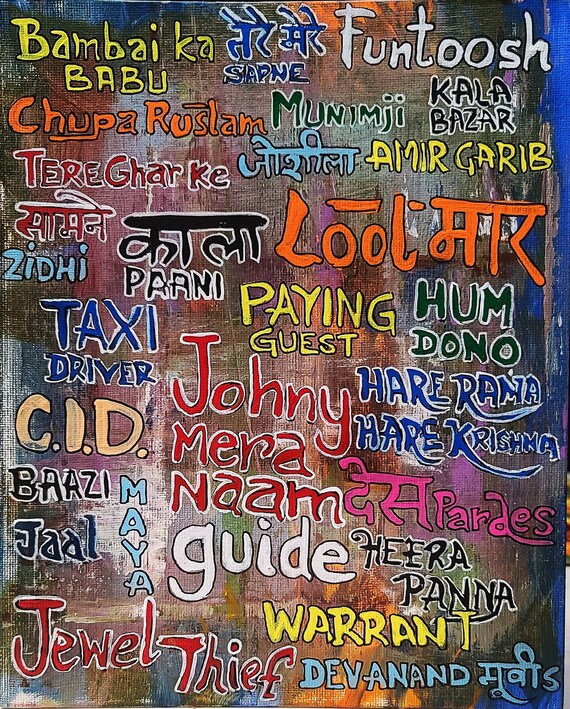 Bambai ka
BABU
तेरे मेरे
SAPNE
Funtoosh
Chupa Ruslam
MUNIMJI
KALA
BAZAR
TERE Ghar Ke
सामने
जोशीला
AMIR GARIB
ZIDHI
काला
PAANI
Lootमार
TAXI
DRIVER
PAYING
GUEST
HUM
DONO
C.I.D.
Johny
Mera
Naam
HARE RAMA
HARE KRISHNA
BAAZI
MAYA
देस Pardes
Jaal
guide
HEERA
PANNA
Jewel Thief
WARRANT
DEVANAND मूवीड